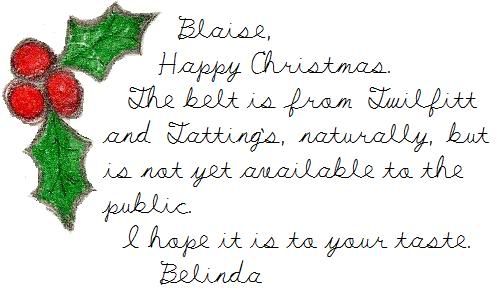 Blaise,
Happy Christmas.
The belt is from Twilfitt
and Tatting's, naturally, but
is not yet available to the
public.
I hope it is to your taste.
Belinda